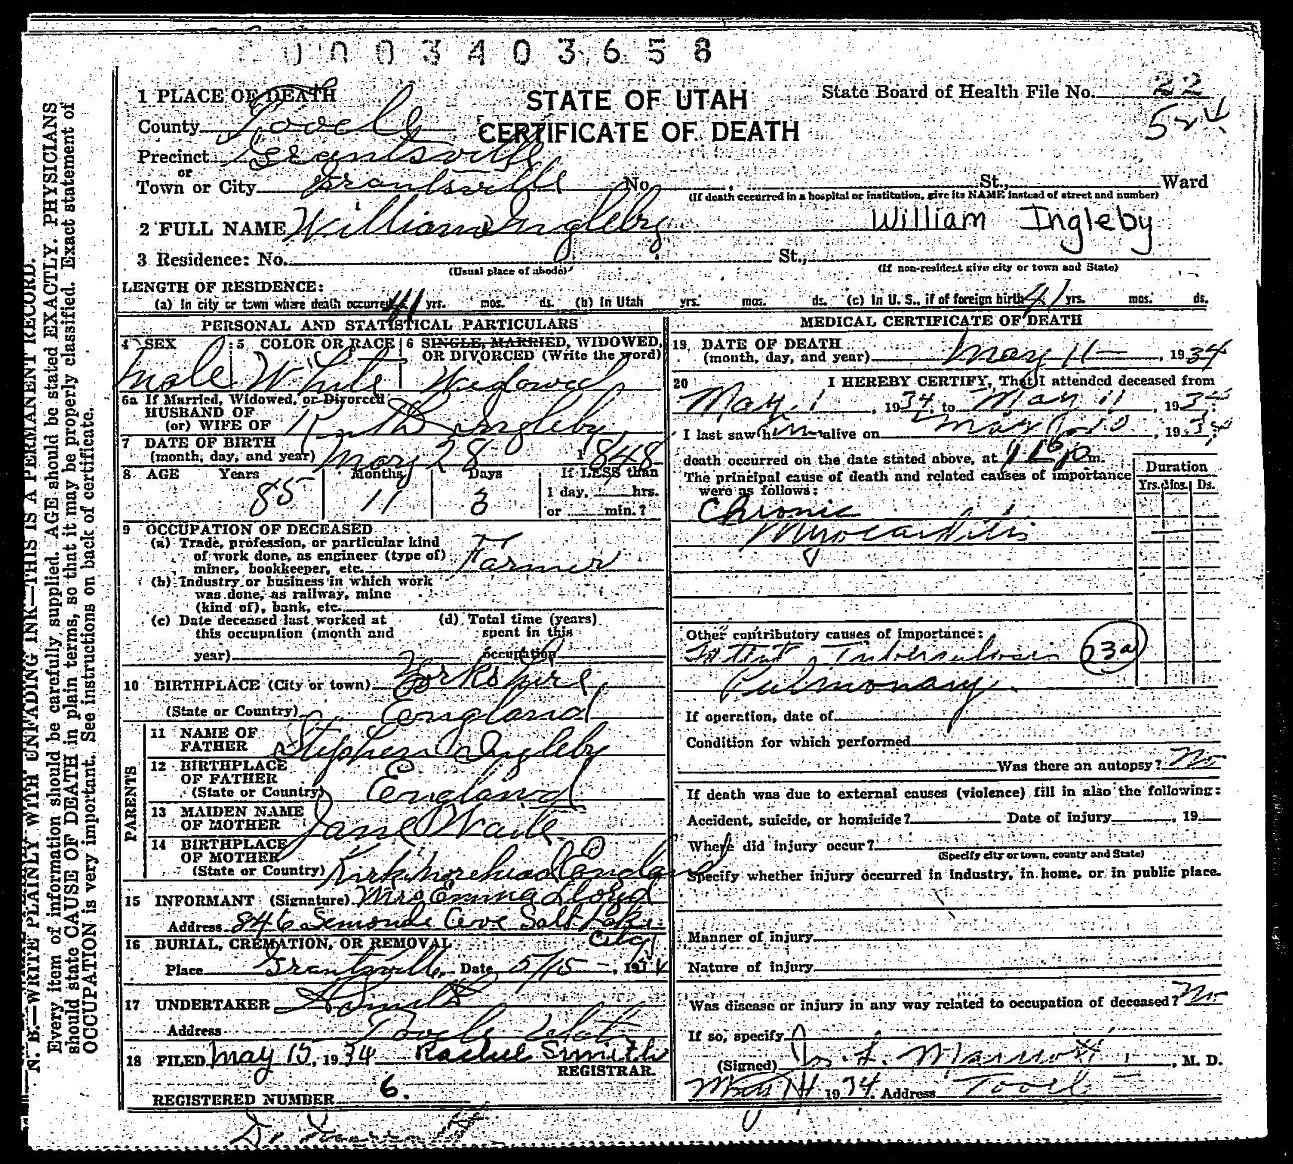 0003403658
1 PLACE OF DEATH
STATE OF UTAH
CERTIFICATE OF DEATH
State Board of Health File No. 22
52
County Tooele
Precinct Grantsville
or
Town or City Grantsville No. , St., Ward
(If death occurred in a hospital or institution, give its NAME instead of street and number)
2 FULL NAME William Ingleby William Ingleby
3 Residence: No. St.,
(Usual place of abode) (If non-resident give city or town and State)
LENGTH OF RESIDENCE:
(a) In city or town where death occurred 41 yrs. mos. ds. (b) In Utah yrs. mos. ds. (c) In U. S., if of foreign birth 41 yrs. mos. ds.
PERSONAL AND STATISTICAL PARTICULARS
4 SEX 5 COLOR OR RACE 6 SINGLE, MARRIED, WIDOWED, OR DIVORCED (Write the word)
Male White Widowed
6a If Married, Widowed, or Divorced
HUSBAND OF
(or) WIFE OF Ruth Ingleby
7 DATE OF BIRTH
(month, day, and year) May 28 1848
8 AGE Years Months Days If LESS than
85 11 3 1 day, hrs.
or min.?
9 OCCUPATION OF DECEASED
(a) Trade, profession, or particular kind
of work done, as engineer (type of)
miner, bookkeeper, etc. Farmer
(b) Industry or business in which work
was done, as railway, mine
(kind of), bank, etc.
(c) Date deceased last worked at (d) Total time (years)
this occupation (month and spent in this
year) occupation
10 BIRTHPLACE (City or town) Yorkshire
(State or Country) England
PARENTS
11 NAME OF
FATHER Stephen Ingleby
12 BIRTHPLACE
OF FATHER
(State or Country) England
13 MAIDEN NAME
OF MOTHER Jane Waite
14 BIRTHPLACE
OF MOTHER
(State or Country) England
15 INFORMANT (Signature) Mrs Emma Lloyd
Address 846 Ave Salt Lake
City
16 BURIAL, CREMATION, OR REMOVAL
Place Grantsville Date 5/15 , 1934
17 UNDERTAKER
Address Tooele Utah
18 FILED May 15, 1934 Rachel Smith
REGISTRAR.
REGISTERED NUMBER 6.
MEDICAL CERTIFICATE OF DEATH
19. DATE OF DEATH
(month, day, and year) May 11 , 1934
20 I HEREBY CERTIFY, That I attended deceased from
May 1 , 1934, to May 11 , 1934
I last saw him alive on May 10 , 1934
death occurred on the date stated above, at m.
The principal cause of death and related causes of importance
were as follows:
Duration
Yrs. Mos. Ds.
Chronic
Myocarditis
Other contributory causes of importance:
Tuberculosis 23a
Pulmonary.
If operation, date of
Condition for which performed
Was there an autopsy? No
If death was due to external causes (violence) fill in also the following:
Accident, suicide, or homicide? Date of injury , 19
Where did injury occur?
(Specify city or town, county and State)
Specify whether injury occurred in industry, in home, or in public place.
Manner of injury
Nature of injury
Was disease or injury in any way related to occupation of deceased? No
If so, specify
(Signed) , M. D.
May 14 1934. Address Tooele
N. B.—WRITE PLAINLY WITH UNFADING INK—THIS IS A PERMANENT RECORD.
Every item of information should be carefully supplied. AGE should be stated EXACTLY. PHYSICIANS
should state CAUSE OF DEATH in plain terms, so that it may be properly classified. Exact statement of
OCCUPATION is very important. See instructions on back of certificate.